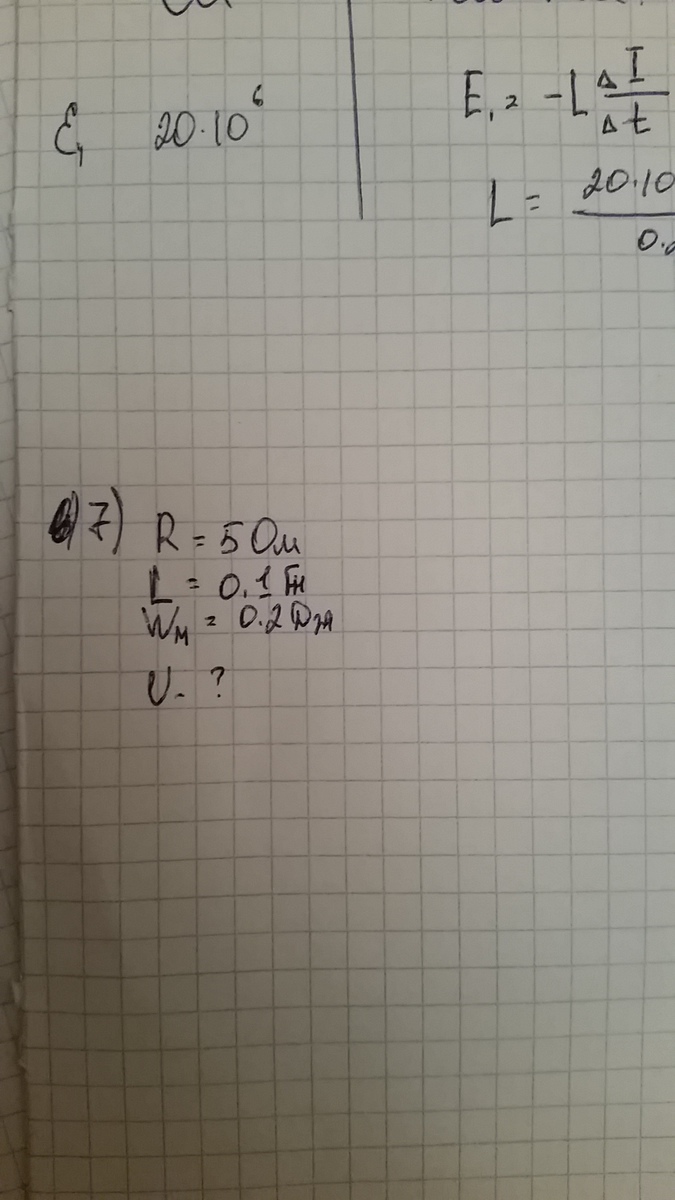 Ɛ₁ 20·10⁶
E₁ = -L ΔI/Δt
L = 20·10/0.2
7) R = 5 Ом
L = 0.1 Гн
Wм = 0.2 Дж
U - ?